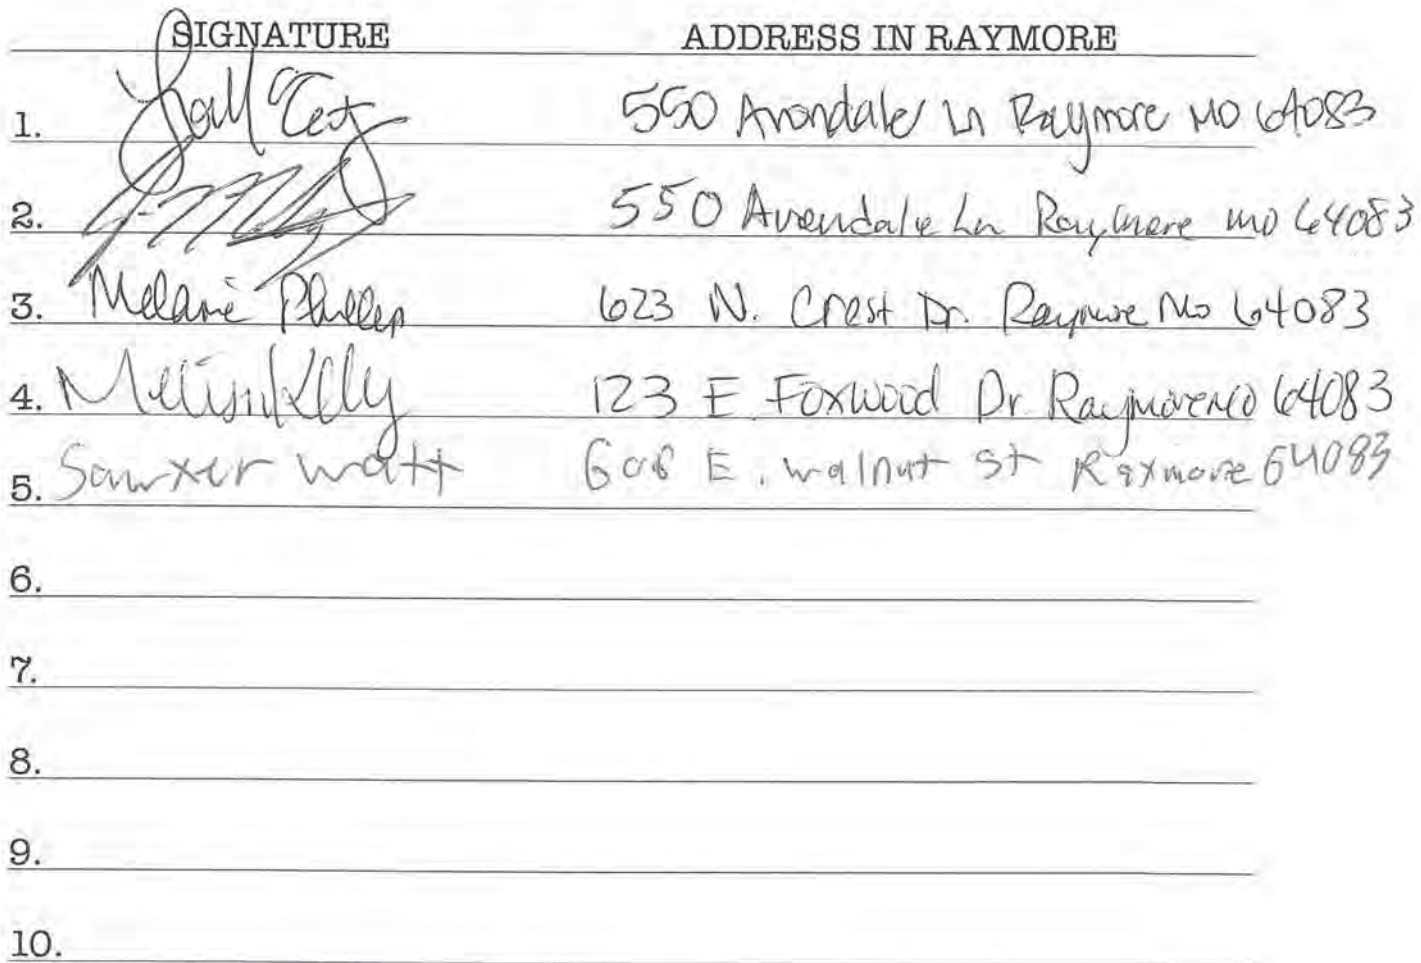 SIGNATURE ADDRESS IN RAYMORE
1. 550 Avondale Ln Raymore MO 64083
2. 550 Avondale Ln Raymore mo 64083
3. Melanie 623 N. Crest Dr. Raymore Mo 64083
4. Kelly 123 E Foxwood Dr Raymore MO 64083
5. Sawyer Watt E. walnut st Raymore 64083
6.
7.
8.
9.
10.